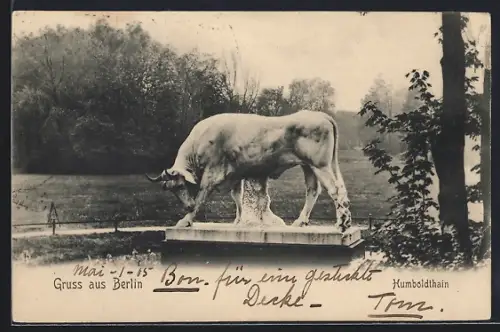 Mai-1-15
Gruss aus Berlin
Humboldthain
Bon. für eine gestickte
Decke-
Tom.